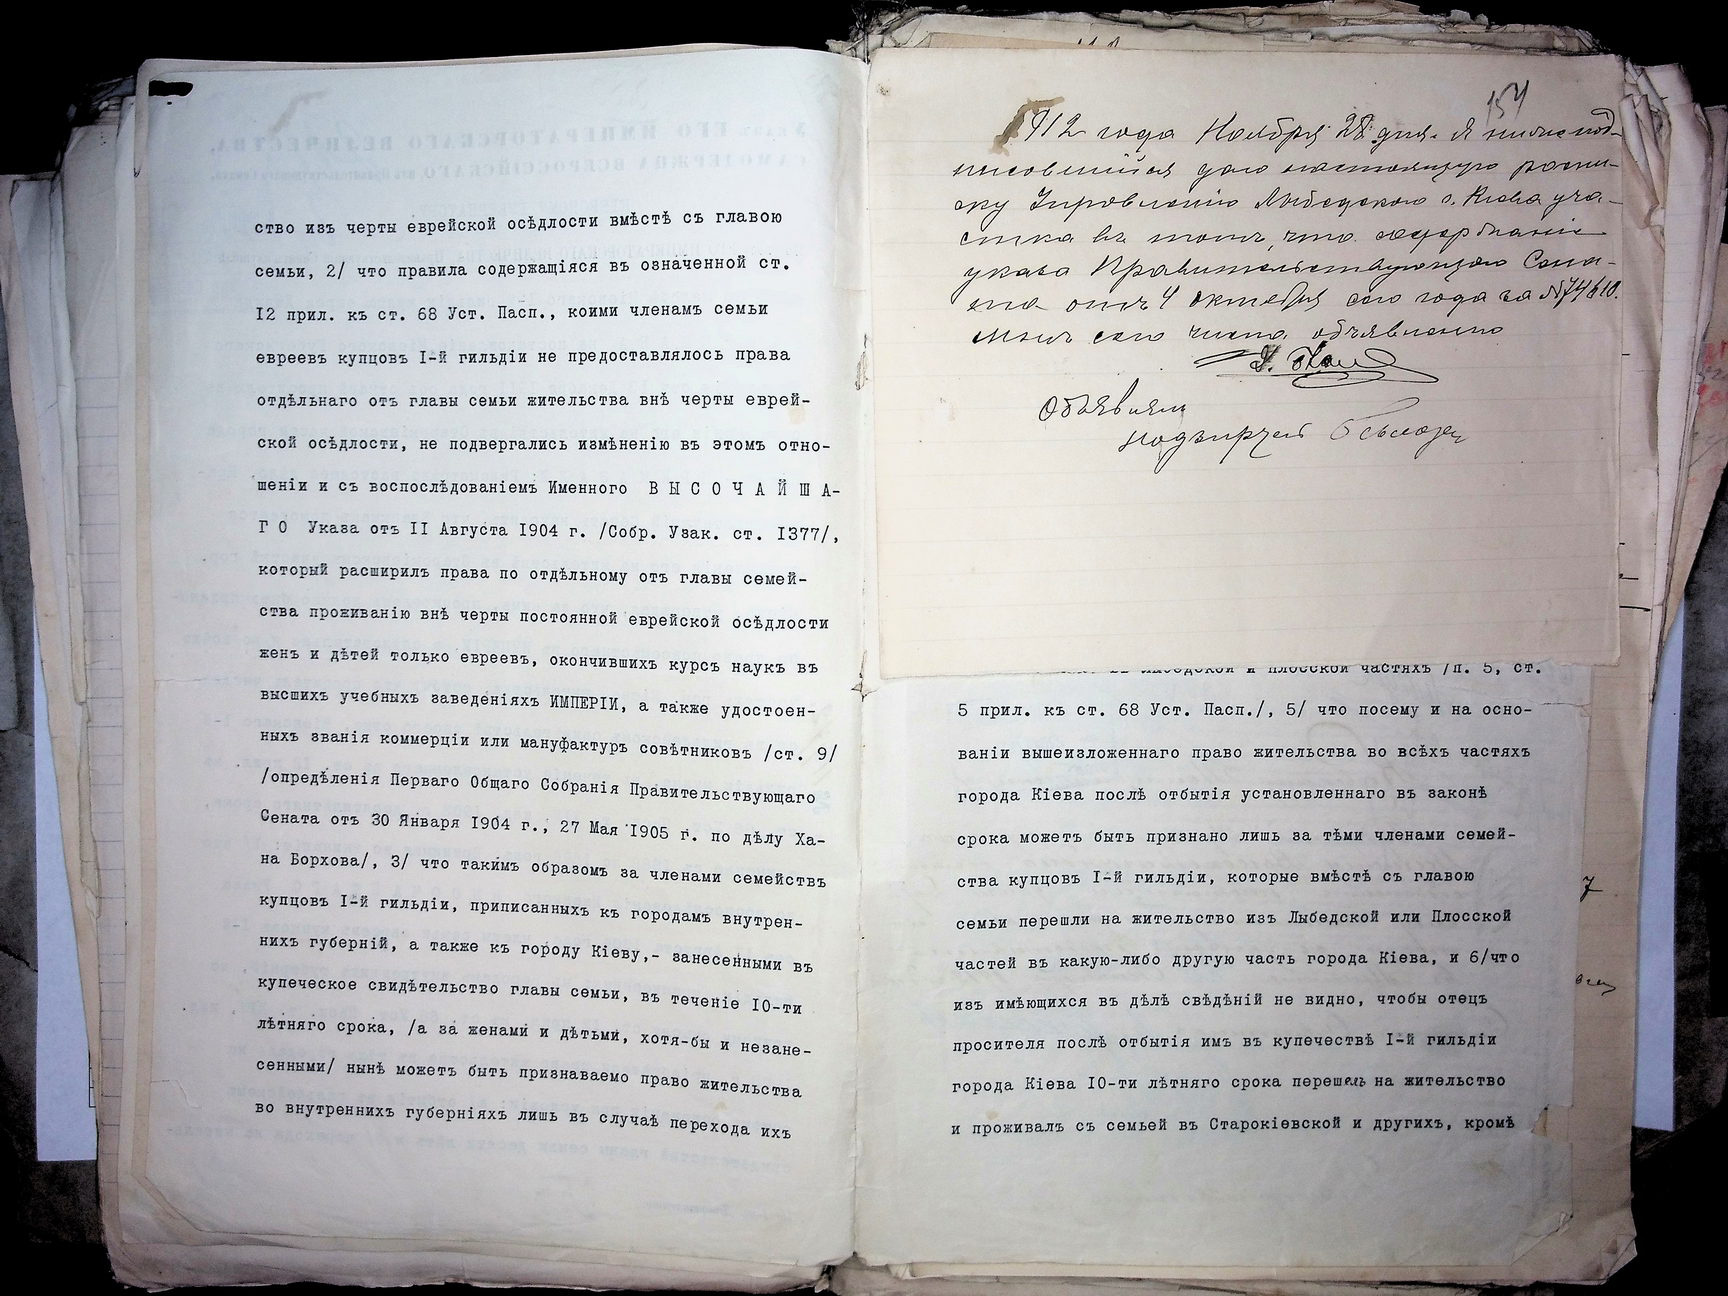 ство изъ черты еврейской осѣдлости вмѣстѣ съ главою
семьи, 2/ что правила содержащіяся въ означенной ст.
I2 прил. къ ст. 68 Уст. Пасп., коими членамъ семьи
евреевъ купцовъ I-й гильдіи не предоставлялось права
отдѣльнаго отъ главы семьи жительства внѣ черты еврей-
ской осѣдлости, не подвергались измѣненію въ этомъ отно-
шеніи и съ воспослѣдованіемъ Именного В Ы С О Ч А Й Ш А-
Г О Указа отъ II Августа I904 г. /Собр. Узак. ст. I377/,
который расширилъ права по отдѣльному отъ главы семей-
ства проживанію внѣ черты постоянной еврейской осѣдлости
женъ и дѣтей только евреевъ, окончившихъ курсъ наукъ въ
высшихъ учебныхъ заведеніяхъ ИМПЕРІИ, а также удостоен-
ныхъ званія коммерціи или мануфактуръ совѣтниковъ /ст. 9/
/опредѣленія Перваго Общаго Собранія Правительствующаго
Сената отъ 30 Января I904 г., 27 Мая I905 г. по дѣлу Ха-
на Борхова/, 3/ что такимъ образомъ за членами семействъ
купцовъ I-й гильдіи, приписанныхъ къ городамъ внутрен-
нихъ губерній, а также къ городу Кіеву,- занесенными въ
купеческое свидѣтельство главы семьи, въ теченіе I0-ти
лѣтняго срока, /а за женами и дѣтьми, хотя-бы и незане-
сенными/ нынѣ можетъ быть признаваемо право жительства
во внутреннихъ губерніяхъ лишь въ случаѣ перехода ихъ
154
1912 года Ноября 28 дня. Я нижепод-
писавшійся даю настоящую распи-
ску Управленію Лыбедского г. Кіева уча-
стка въ томъ, что содержаніе
указа Правительствующаго Сена-
та отъ 4 октября сего года за №74610.
мнѣ сего числа объявлено
Объявилъ
надзиратель
Лыбедской и Плосской частяхъ /п. 5, ст.
5 прил. къ ст. 68 Уст. Пасп./, 5/ что посему и на осно-
ваніи вышеизложеннаго право жительства во всѣхъ частяхъ
города Кіева послѣ отбытія установленнаго въ законѣ
срока можетъ быть признано лишь за тѣми членами семей-
ства купцовъ I-й гильдіи, которые вмѣстѣ съ главою
семьи перешли на жительство изъ Лыбедской или Плосской
частей въ какую-либо другую часть города Кіева, и 6/что
изъ имѣющихся въ дѣлѣ свѣдѣній не видно, чтобы отецъ
просителя послѣ отбытія имъ въ купечествѣ I-й гильдіи
города Кіева I0-ти лѣтняго срока перешелъ на жительство
и проживалъ съ семьей въ Старокіевской и другихъ, кромѣ